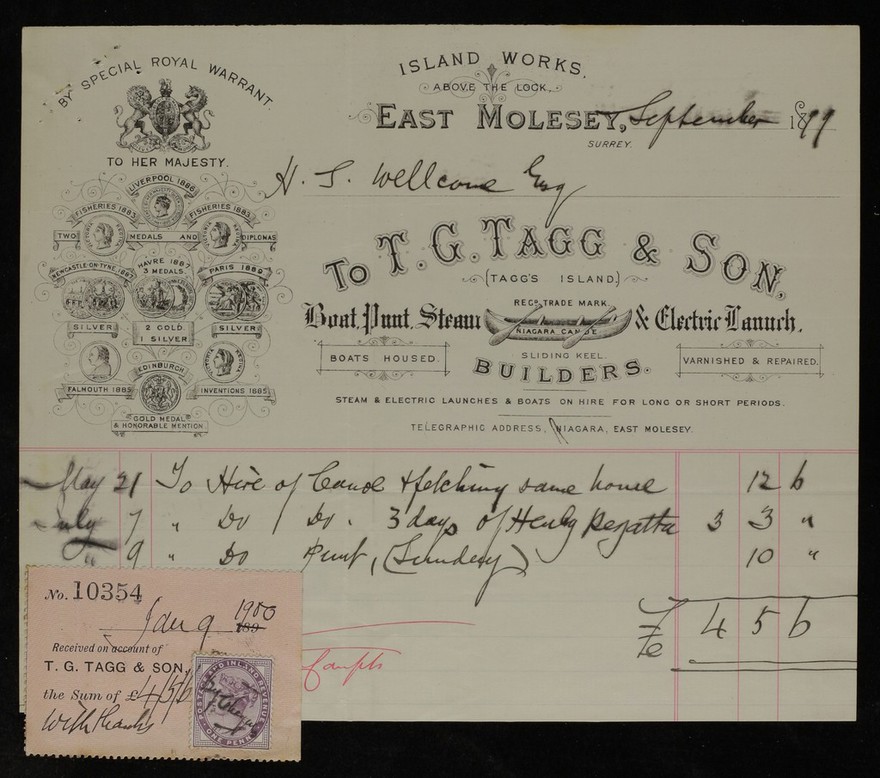 BY SPECIAL ROYAL WARRANT.
TO HER MAJESTY.
LIVERPOOL 1886
FISHERIES 1883
FISHERIES 1883
TWO MEDALS AND DIPLOMAS
NEWCASTLE-ON-TYNE, 1887
HAVRE 1887
3 MEDALS
PARIS 1889
SILVER
2 GOLD
1 SILVER
SILVER
EDINBURGH
FALMOUTH 1885
INVENTIONS 1885
GOLD MEDAL
& HONORABLE MENTION
ISLAND WORKS.
ABOVE THE LOCK.
EAST MOLESEY, September 1899
SURREY.
H. S. Wellcome Esq
To T. G. TAGG & SON,
(TAGG'S ISLAND.)
Boat, Punt, Steam & Electric Launch.
REGD TRADE MARK.
NIAGARA CANOE
SLIDING KEEL.
BOATS HOUSED.
BUILDERS.
VARNISHED & REPAIRED.
STEAM & ELECTRIC LAUNCHES & BOATS ON HIRE FOR LONG OR SHORT PERIODS.
TELEGRAPHIC ADDRESS, NIAGARA, EAST MOLESEY.
May 21 To Hire of Canoe & fetching same home 12 6
July 7 " Do Do. 3 days of Henley Regatta 3 3 "
" 9 " Do Punt, (Sunday) 10 "
£ 4 5 6
No. 10354
Jan 9 1900
189
Received on account of
T. G. TAGG & SON,
the Sum of £4/5/6
With thanks
POSTAGE AND INLAND REVENUE
ONE PENNY